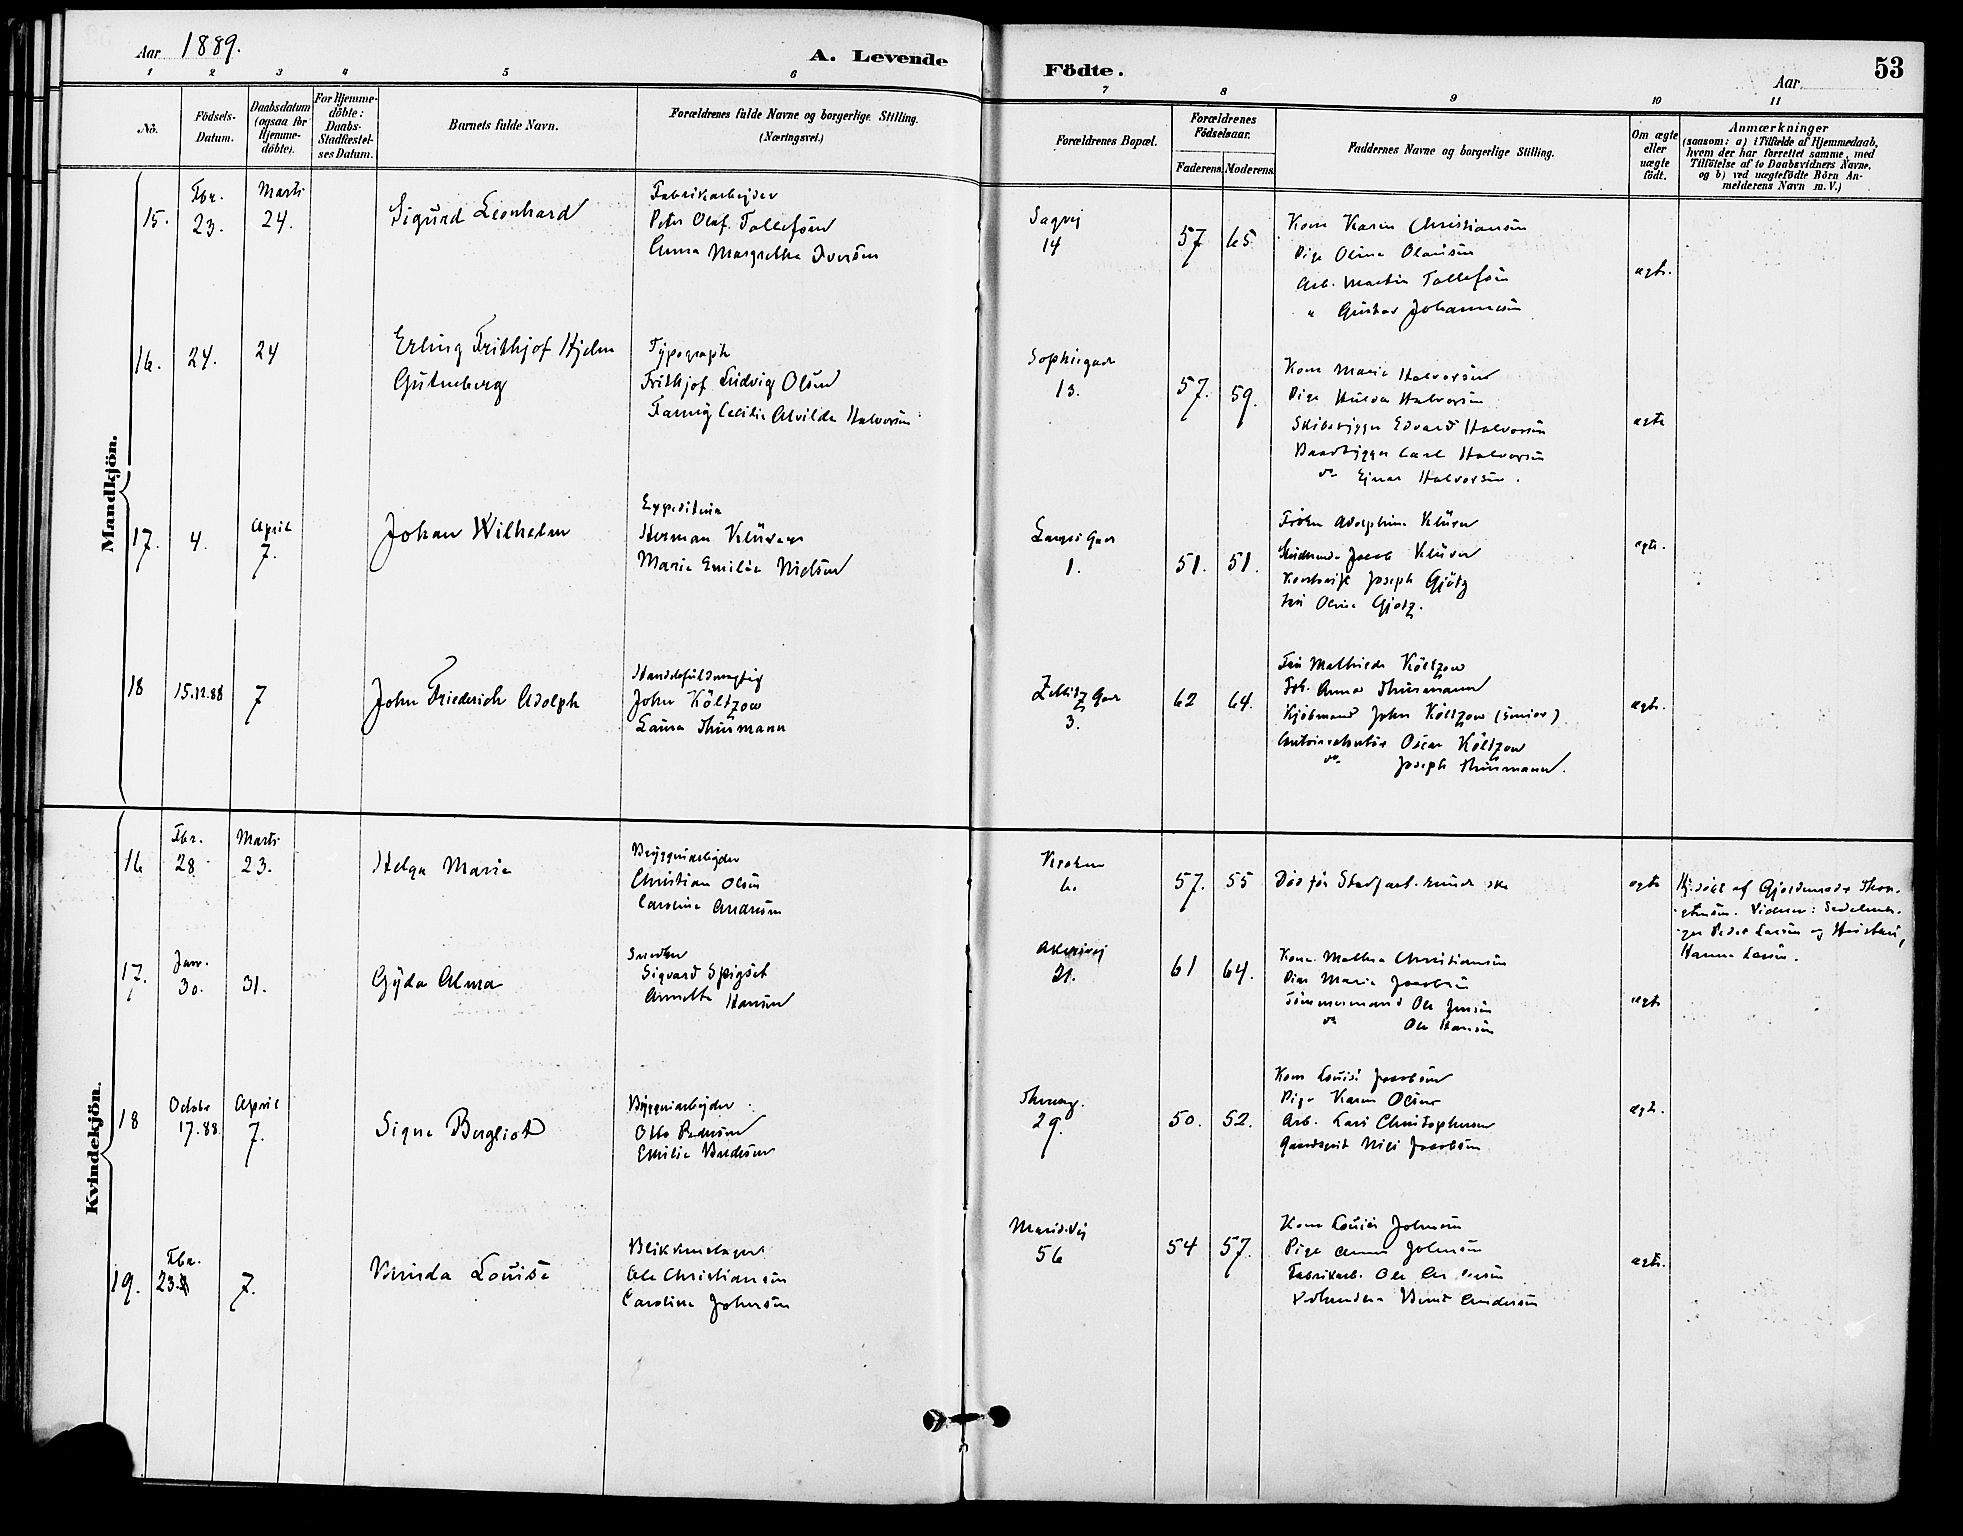 Aar 1889.
A. Levende
Födte.
Aar
53
1 2 3 4 5 6 7 8 9 10 11
No.
Födsels-
Datum.
Daabsdatum
(ogsaa for
Hjemme-
döbte).
For Hjemme-
döbte:
Daabs-
Stadfæstel-
ses Datum.
Barnets fulde Navn.
Forældrenes fulde Navne og borgerlige Stilling.
(Næringsvei.)
Forældrenes Bopæl.
Forældrenes
Födselsaar.
Faderens. Moderens.
Faddernes Navne og borgerlige Stilling.
Om ægte
eller
uægte
födt.
Anmærkninger
(saasom: a) i Tilfælde af Hjemmedaab,
hvem der har forrettet samme, med
Tilföielse af to Daabsvidners Navne,
og b) ved uægtefödte Börn An-
melderens Navn m. V.)
Mandkjön.
15.
Fbr.
23.
Marts
24.
Sigurd Leonhard
Fabrikarbejder
Peter Olaf Tollefsen
Anna Margrethe Iversen
Sagvej
14
57 65
Kone Karen Christiansen
Pige Oline Olausen
Arb. Martin Tollefsen
" Gustav Johannesen
ægte.
16.
24.
24
Erling Frithjof Hjelm
Gutenberg
Typograph
Frithjof Ludvig Olsen
Fanny Cecilie Alvilde Halvorsen
Sophiegad
13.
57. 59.
Kone Marie Halvorsen
Pige Hulda Halvorsen
Skibsbygger Edvard Halvorsen
Baadbygger Carl Halvorsen
do Ejnar Halvorsen.
ægte
17.
4.
April
7.
Johan Wilhelm
Herman Klüver
Marie Emilie Nielsen
1.
51. 51.
Frøken Adolphine Klüver
Jacob Klüver
Joseph Gjötz
Fru Oline Gjötz.
ægte.
18
15.12.88
7
John Friederich Adolph
Handelsfuldmægtig
John Költzow
Laura Thurmann
Zetlitz Gad
3.
62 64.
Fru Mathilde Költzow
Frk. Anna Thurmann
Kjöbmand John Költzow (senior)
Oscar Költzow
do. Joseph Thurmann.
ægte.
Kvindekjön.
16
Fbr.
28
Marts
23.
Helga Marie
Bryggeriarbejder
Christian Olsen
Caroline Andresen
6.
57. 55
Död før Stadfæst. kunde ske
ægte
Hj. døbt af Gjordemoder Thor-
Vidner:
Peder Larsen og Hustru,
Hanna Larsen.
17.
Jan.
30.
31.
Gyda Alma
Snedker
Sigvard Spigset
Annette Hansen
Akersvej
21.
61 64.
Kone Mathea Christiansen
Pige Marie Jacobsen
Tömmermand Ole Jensen
do Ole Hansen
ægte
18
Octobr
17.88.
April
7.
Signe Bergliot
Bryggeriarbejder
Otto Pedersen
Emilie Pedersen
29.
50. 52.
Kone Louise Jacobsen
Pige Karen Olsen
Arb. Lars Christophersen
Niels Jacobsen
ægte.
19.
Fbr.
23.
7.
Vanda Louise
Blikkenslager
Ole Christiansen
Caroline Johnsen
Maridalsvej
56
54 57.
Kone Louise Johnsen
Pige Anna Johnsen
Fabrikarb. Ole Andersen
Bernt Andersen
ægte.